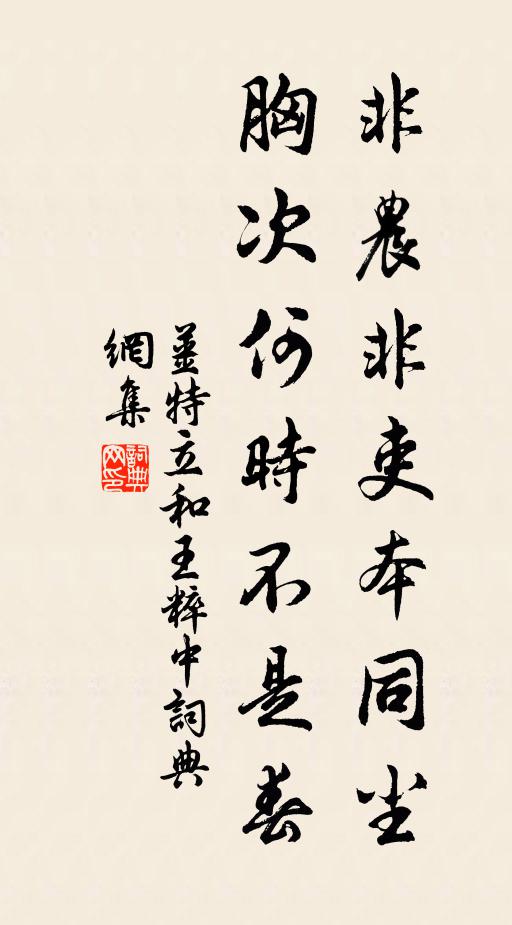 非農非吏本同塵
胸次何時不是春
姜特立和王粹中詞典
網集
詞典网印